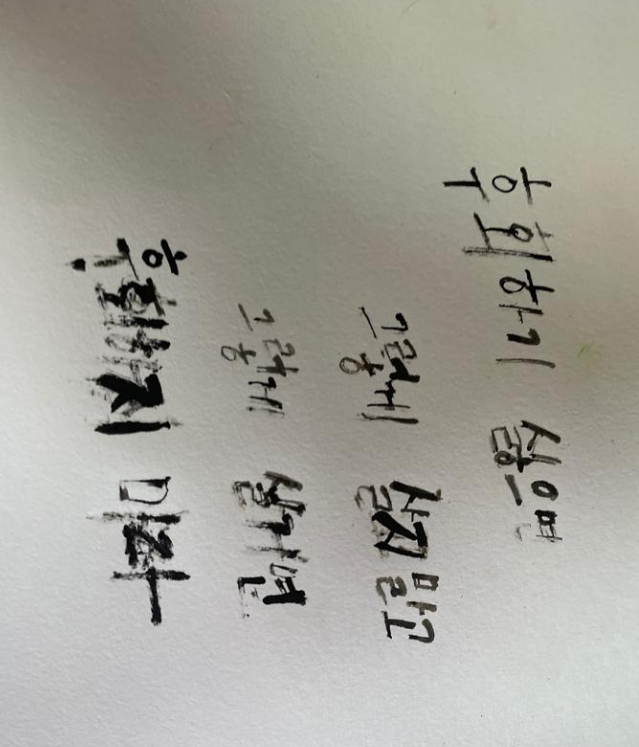 후회하기 싫으면
그렇게 살지말고
그렇게 살거면
후회하지 마라